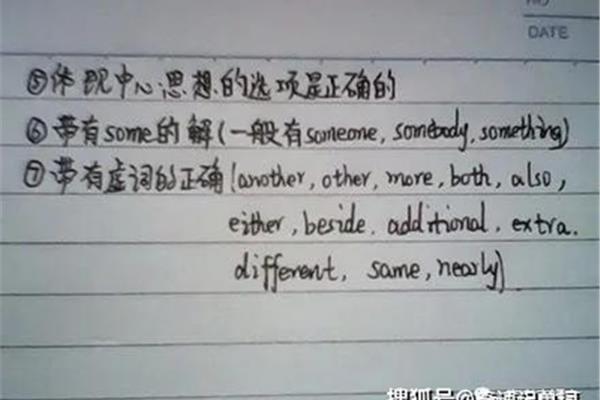 DATE
⑤体现中心思想的选项是正确的
⑥带有some的解(一般有someone, somebody, something)
⑦带有虚词的正确(another, other, more, both, also,
either, beside. additional, extra.
different, same, nearly)
搜狐号@